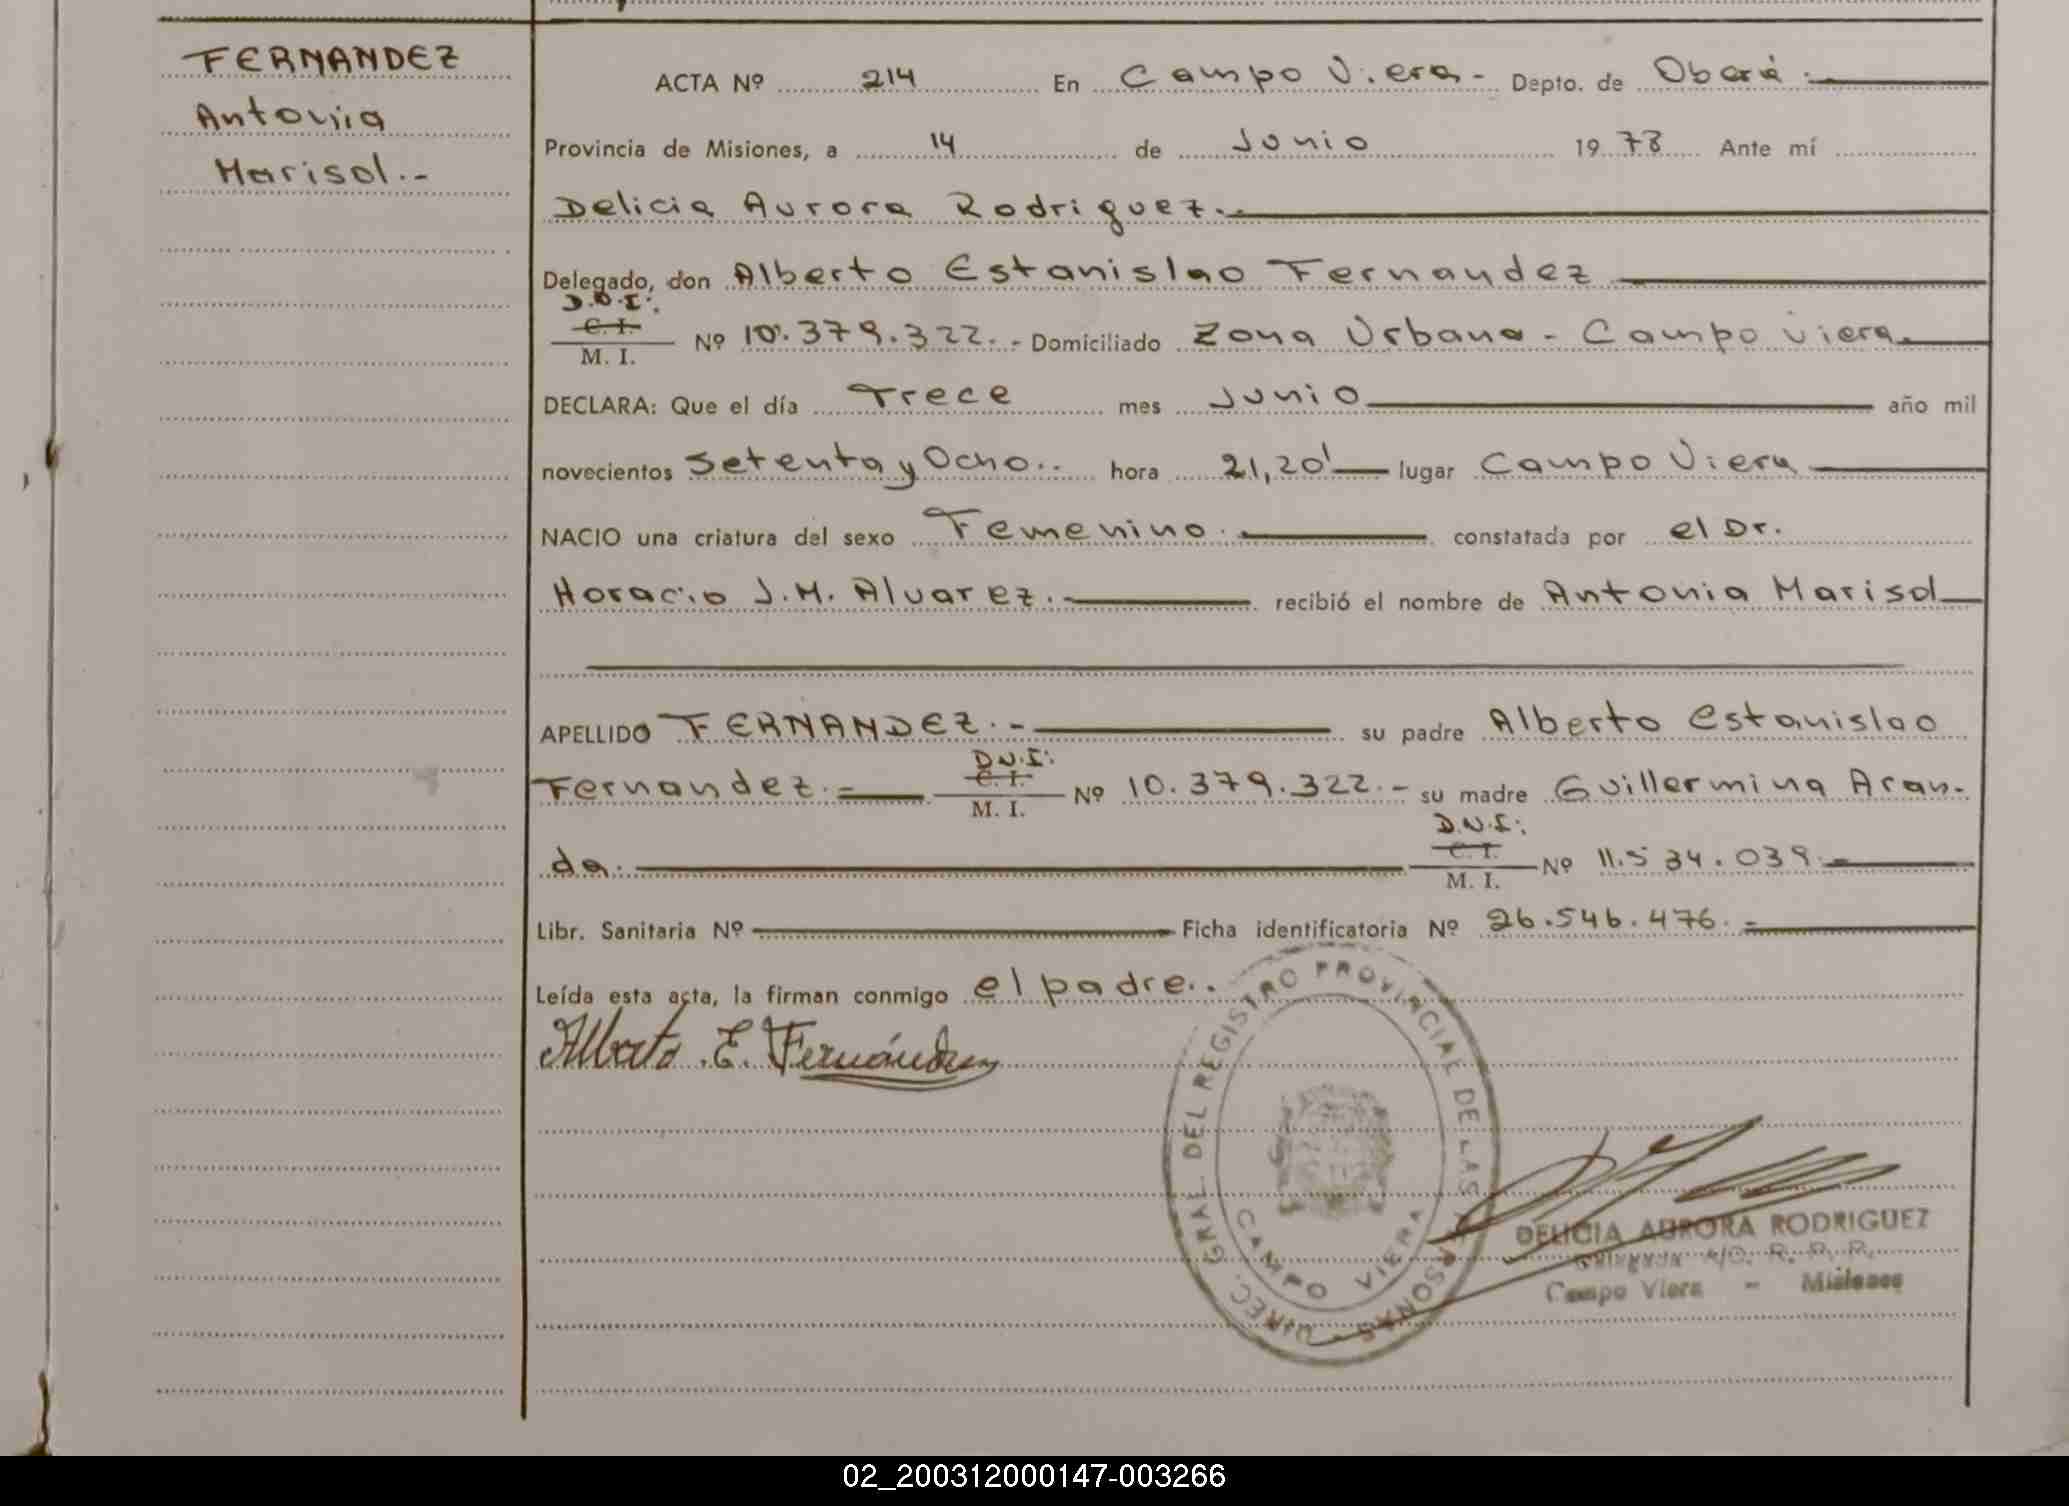 FERNANDEZ
Antonia
Marisol.-
ACTA Nº 214 En Campo Viera.- Depto. de Oberá.
Provincia de Misiones, a 14 de Junio 1978 Ante mí
Delicia Aurora Rodriguez.-
Delegado, don Alberto Estanislao Fernandez
D.N.I:
C. I.
M. I. Nº 10.379.322.- Domiciliado Zona Urbana - Campo Viera.
DECLARA: Que el día Trece mes Junio año mil
novecientos Setenta y Ocho.. hora 21,20' lugar Campo Viera
NACIO una criatura del sexo Femenino. constatada por el Dr.
Horacio J.M. Alvarez.- recibió el nombre de Antonia Marisol
APELLIDO FERNANDEZ.- su padre Alberto Estanislao
Fernandez.- D.N.I: C. I. M. I. Nº 10.379.322.- su madre Guillermina Aran-
da. D.N.I: C. I. M. I. Nº 11.534.039.-
Libr. Sanitaria Nº Ficha identificatoria Nº 26.546.476.-
Leída esta acta, la firman conmigo el padre..
Alberto E. Fernández
DIREC. GRAL. DEL REGISTRO PROVINCIAL DE LAS PERSONAS -
CAMPO VIERA
DELICIA AURORA RODRIGUEZ
Delegada A/C. R. P. P.
Campo Viera - Misiones
02_200312000147-003266